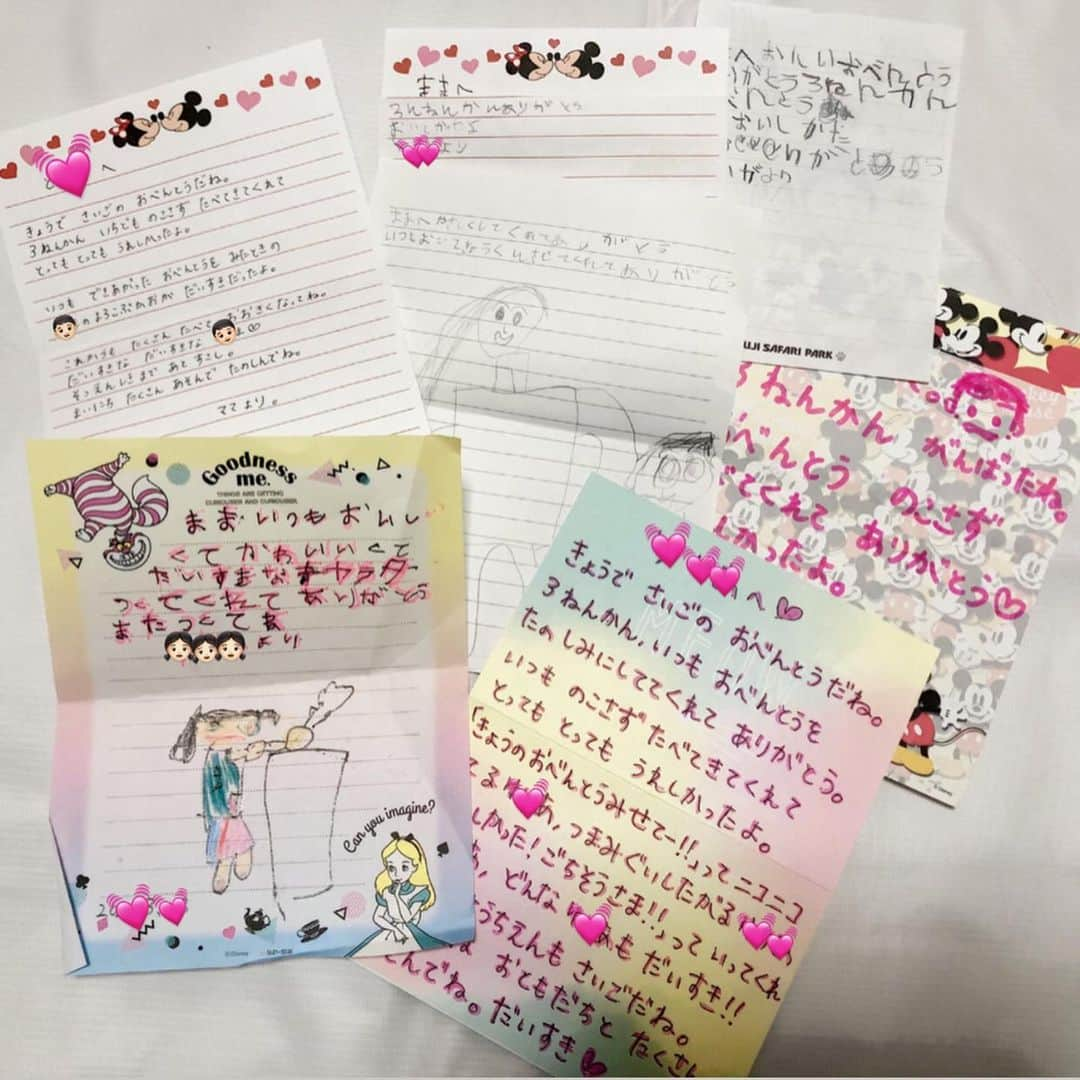 へ
きょうで さいごの おべんとうだね。
3ねんかん いちども のこさず たべてきてくれて
とっても とっても うれしかったよ。
いつも できあがった おべんとうを みたときの
のよろこぶかおが だいすきだったよ。
これからも たくさん たべて おおきくなってね。
だいすきな だいすきな よ♡
そつえんしきまで あと すこし。
まいにち たくさん あそんで たのしんでね。
ママより。
ままへ
3ねんかんありがとう
おいしかたよ
より
ままへ
てくれてありがとう
いつもお てくれてありがとう
へ おいしいおべんとう
がとう3ねんかん
とう
おいしかた
りがとう
より
UJI SAFARI PARK
ねんかん がんばったね。
べんとう のこさず
てくれて ありがとう♡
しかったよ。
Goodness
me.
THINGS ARE GETTING
CURIOUSER AND CURIOUSER.
まま いつもおいし
くてかわいいくて
だいすきな
つくてくれてありがとう
またつくてね
より
Can you imagine?
©Disney
へ♡
きょうで さいごの おべんとうだね。
3ねんかん、いつも おべんとうを
たのしみにしててくれて ありがとう。
いつも のこさず たべてきてくれて
とっても とっても うれしかったよ。
「きょうのおべんとうみせてー!!」って ニコニコ
てる あ、つまみぐいしたがる
しかった!ごちそうさま!!」って いってくれ
あ、どんな あも だいすき!!
うちえんも さいごだね。
おともだちと たくさん
んでね。だいすき♥